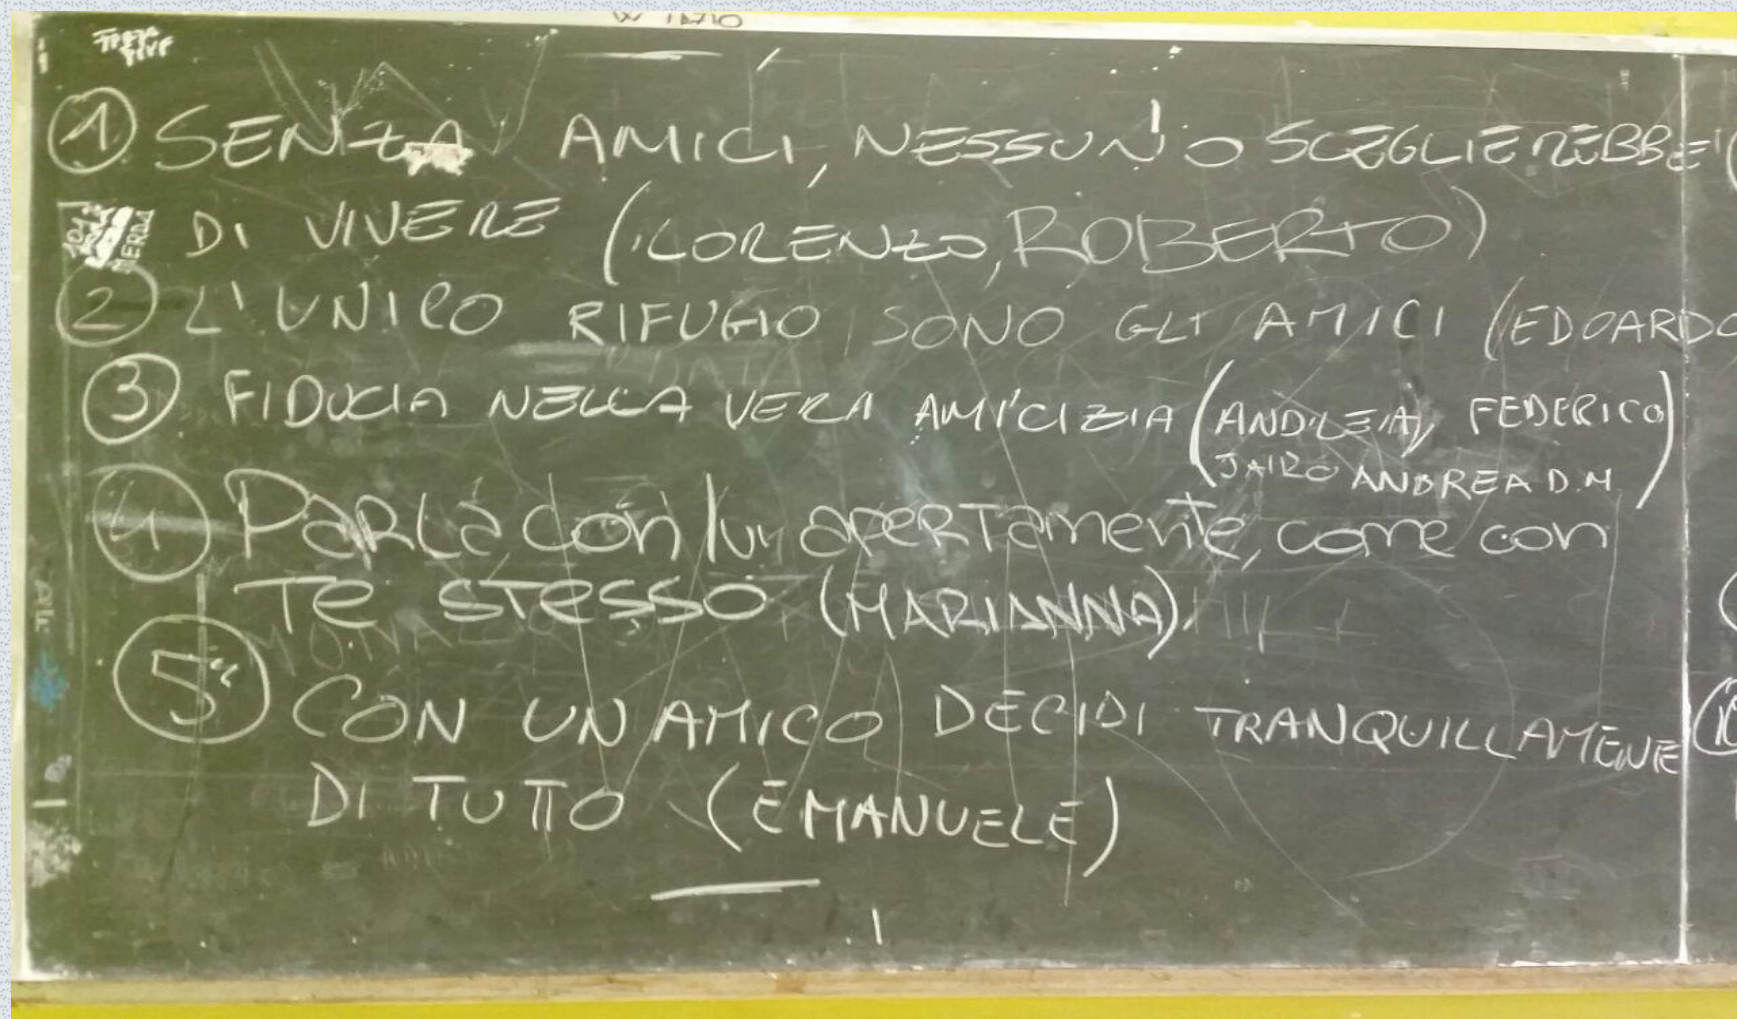 ① SENZA AMICI, NESSUNO SCEGLIEREBBE
DI VIVERE (LORENZO, ROBERTO)
② L'UNICO RIFUGIO SONO GLI AMICI (EDOARDO
③ FIDUCIA NELLA VERA AMICIZIA (ANDREA, FEDERICO
JAIRO ANDREA D.M)
④ PARLA con lui apertamente, come con
Te stesso (MARIANNA)
⑤ CON UN AMICO DECIDI TRANQUILLAMENE
DI TUTTO (EMANUELE)